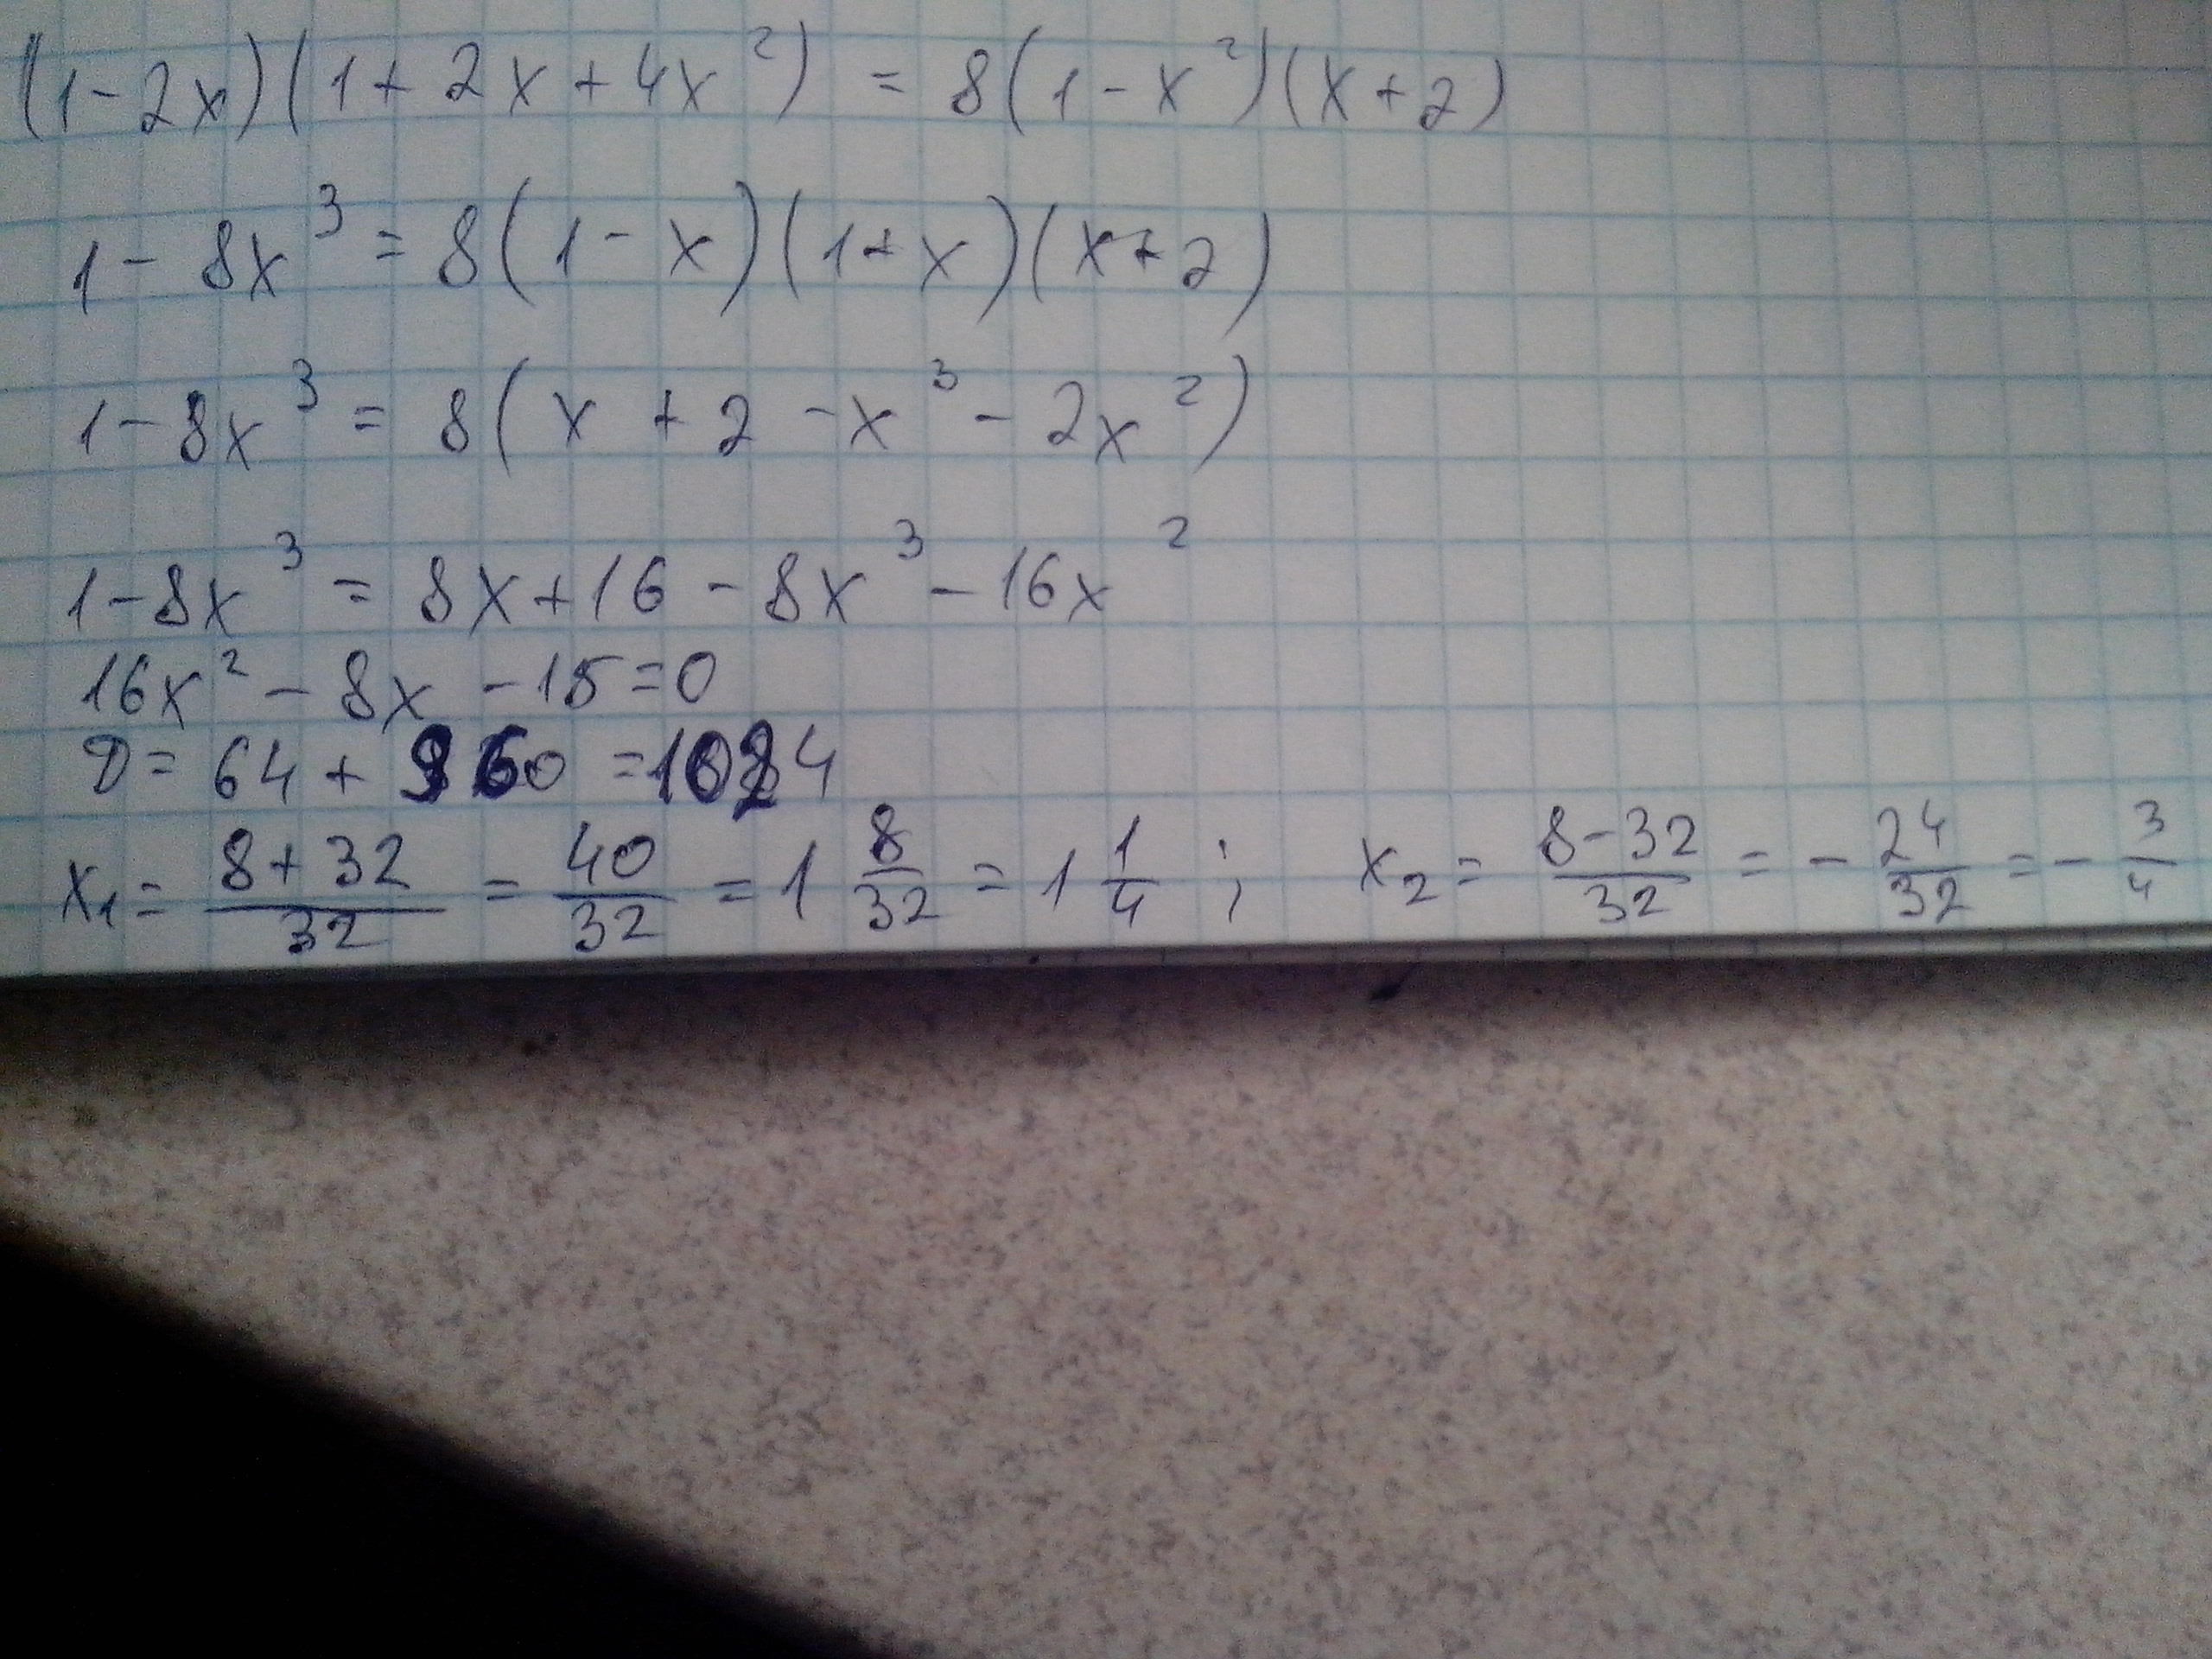 (1-2x)(1+2x+4x²) = 8(1-x²)(x+2)
1-8x³ = 8(1-x)(1+x)(x+2)
1-8x³ = 8(x+2-x³-2x²)
1-8x³ = 8x+16-8x³-16x²
16x²-8x-15=0
D= 64+960 =1024
x₁= (8+32)/32 = 40/32 = 1 8/32 = 1 1/4 ; x₂= (8-32)/32 = -24/32 = -3/4